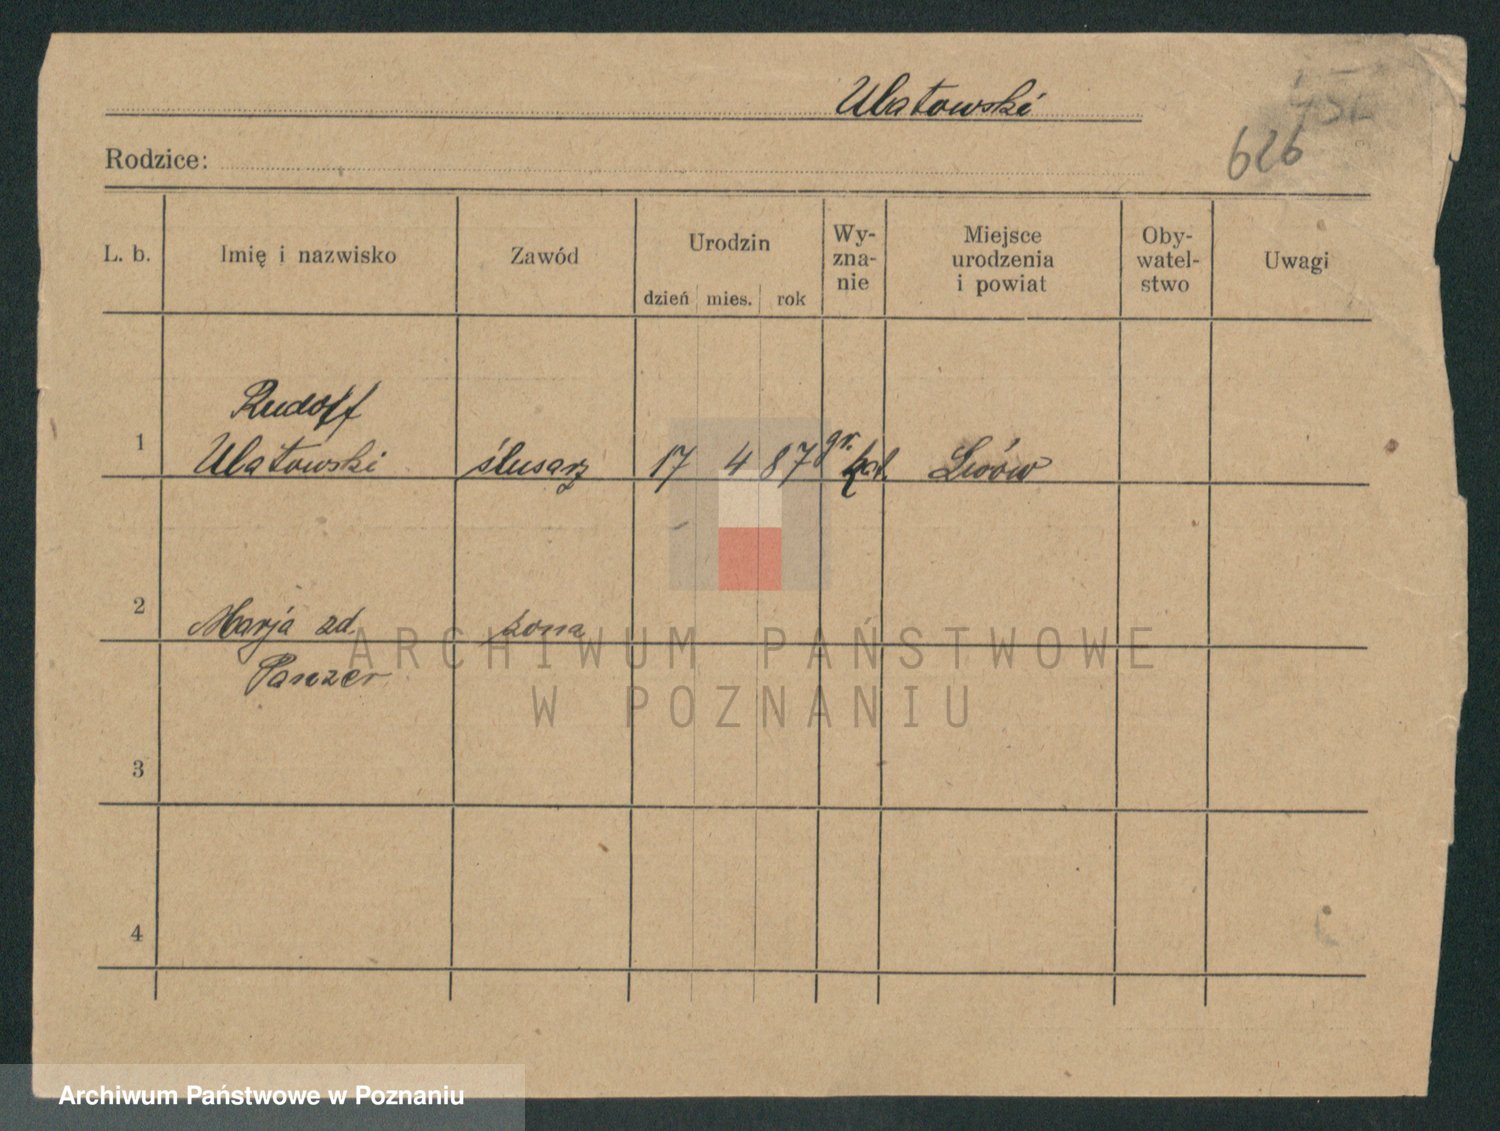 Ulatowski
626
Rodzice:
L. b.
Imię i nazwisko
Zawód
Urodzin
dzień mies. rok
Wy-
zna-
nie
Miejsce
urodzenia
i powiat
Oby-
watel-
stwo
Uwagi
1
Rudolf
Ulatowski
ślusarz
17 4 87
gr.
kat.
Lwów
2
Marja zd.
Panzer
żona
3
4
ARCHIWUM PAŃSTWOWE
W POZNANIU
Archiwum Państwowe w Poznaniu